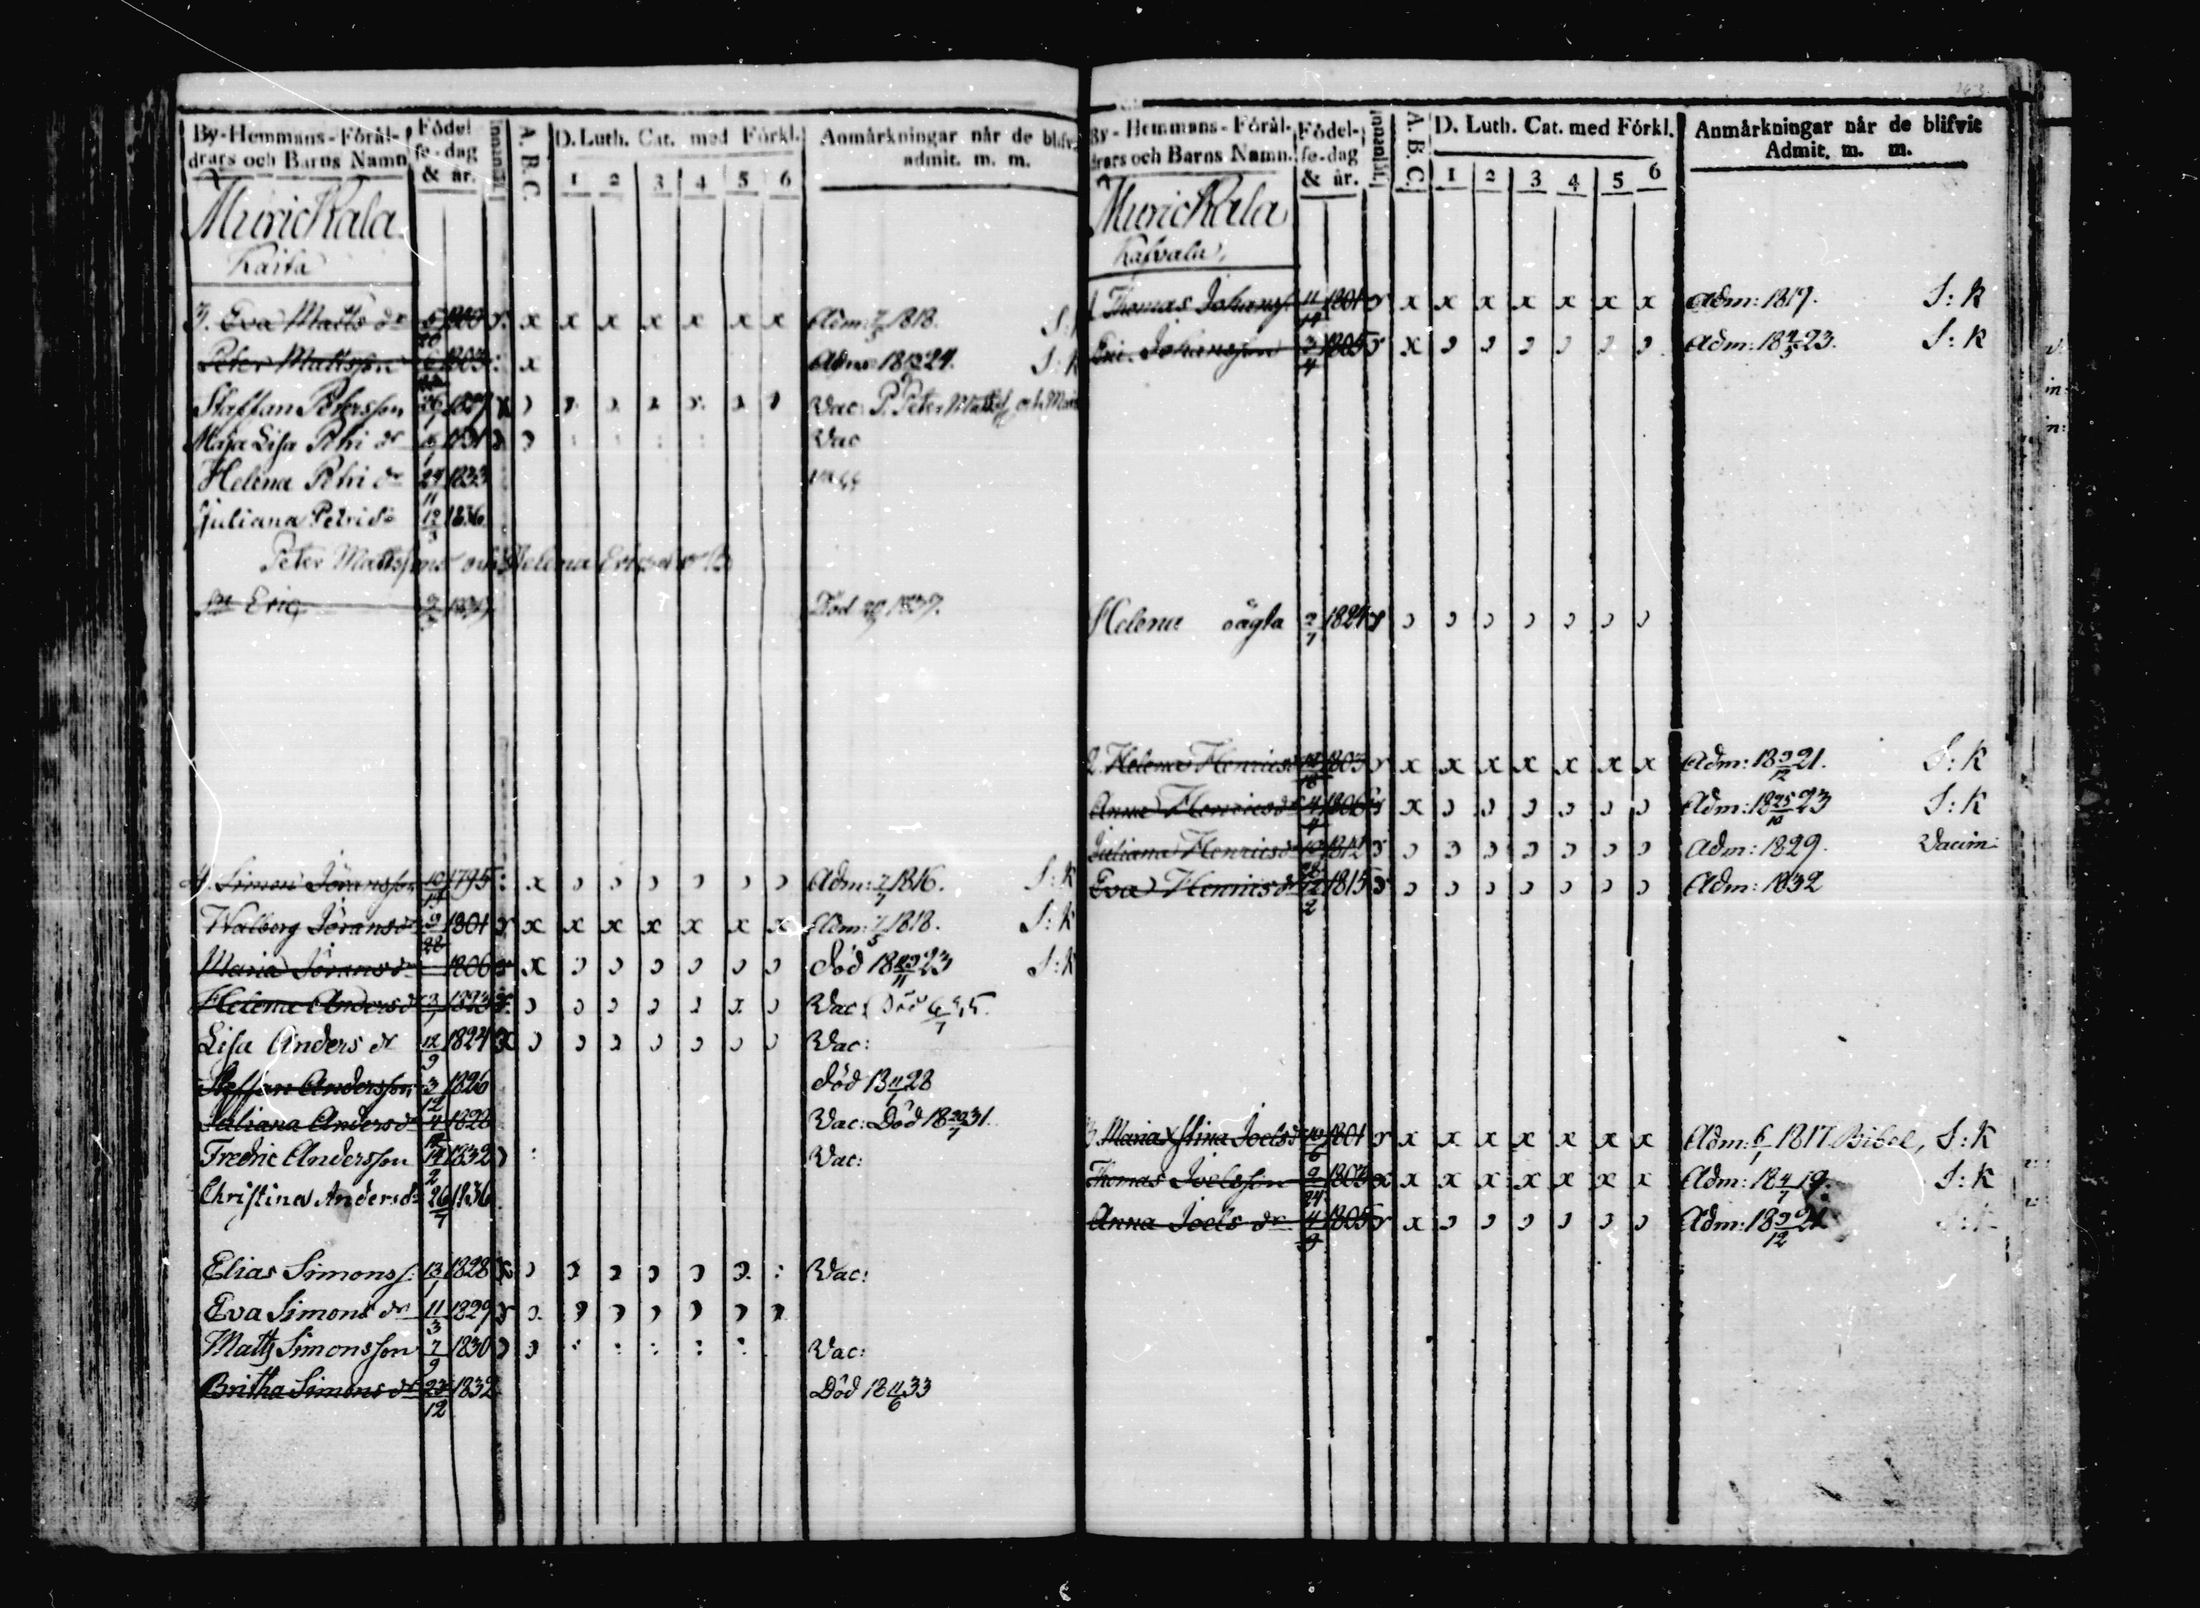 By-Hemmans-Förål-
drars och Barns Namn
Födel
se-dag
& år.
Innanläs.
A. B. C.
D. Luth. Cat. med Förkl.
1 2 3 4 5 6
Anmårkningar når de blifv
admit. m. m.
Murickala
Kaita
3. Eva Matts dr 1800 x x x x x x x Adm: 1818. S:
Peter Mattsson 1803 x Adm: 1824. S: K
Staffan Petersson 26 1827 Vac: P. Peter Matts och
Maja Lisa Petri dr 1831 Vac
Helena Petri dr 24/11 1833
Juliana Petri dr 12/3 1836
Peter Mattsson och Helena Ericsdr
Eric Död 1837.
4. Simon Jöransson 10 1795 x Adm: 1816. S: K
Walborg Jöransdr 9 1801 x x x x x x x Adm: 7/5 1818. S: K
Maria Jöransdr 1806 x död 18 /11 23 S: K
Helena Andersdr 3/1 1823 Vac: Död
Lisa Anders dr 12/9 1824 Vac:
Staffan Andersson 3/12 1826 död 18 28
Juliana Andersdr 4/12 1828 Vac: Död 18 20/7 31.
Fredric Andersson 14/2 1832 Vac:
Christina Andersdr 26/7 1836
Elias Simonss. 13/1 1828 Vac:
Eva Simons dr 11/3 1829
Matts Simonsson 7/9 1830 Vac:
Britha Simons dr 23/12 1832 Död 18 11/6 33
By-Hemmans-Förål-
drars och Barns Namn.
Födel-
se-dag
& år.
Innanläs.
A. B. C.
D. Luth. Cat. med Förkl.
1 2 3 4 5 6
Anmårkningar når de blifvit
Admit. m. m.
Murickala
Kasvala.
1 Thomas Johanss. 11/14 1801 x x x x x x x Adm: 1817. S: K
Eric Johansson 3/4 1805 x Adm: 18 23. S: K
Helena oägta 2/7 1824
2 Helena Henricsdr 1803 x x x x x x x Adm: 18 9/12 21. S: K
Anna Henricsdr 4/4 1806 x Adm: 18 25/10 23 S: K
Juliana Henricsdr 1812 Adm: 1829. Vaccin:
Eva Henricsdr 12/2 1815 Adm: 1832
3. Maria Stina Joelsdr 1801 x x x x x x x Adm: 6/1 1817. Bibel, S: K
Thomas Joelsson 9/24 1803 x x x x x x x Adm: 18 4/7 19. S: K
Anna Joels dr 4/9 1805 x Adm: 18 9/12 21 S: K